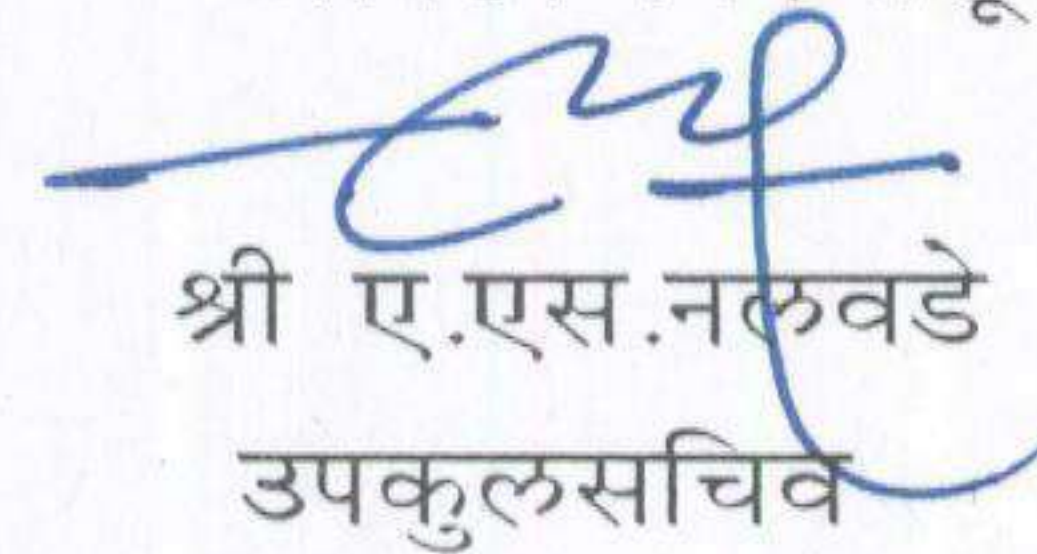 श्री ए.एस.नलवडे
उपकुलसचिव